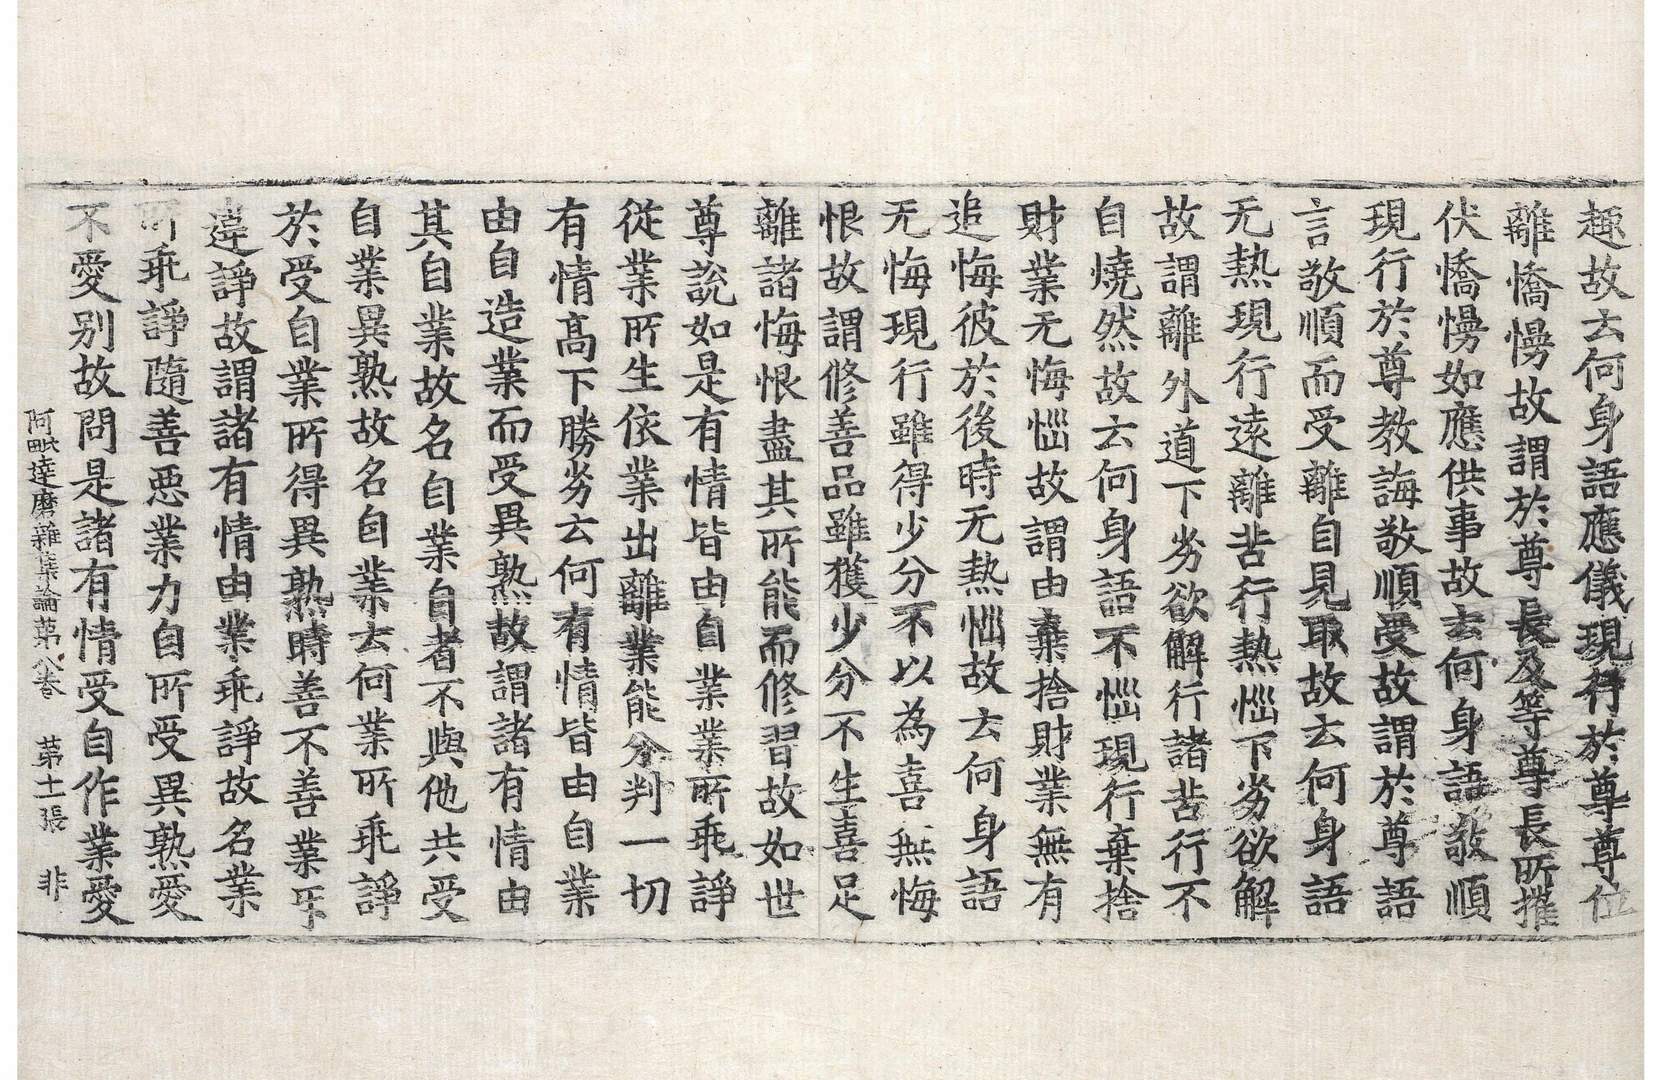 趣故云何身語應儀現行於尊尊位
離憍慢故謂於尊長及等尊長所摧
伏憍慢如應供事故云何身語敬順
現行於尊教誨敬順受故謂於尊語
言敬順而受離自見取故云何身語
无熱現行遠離苦行熱惱下劣欲解
故謂離外道下劣欲解行諸苦行不
自燒然故云何身語不惱現行棄捨
財業无悔惱故謂由棄捨財業無有
追悔彼於後時无熱惱故云何身語
无悔現行雖得少分不以為喜無悔
恨故謂修善品雖獲少分不生喜足
離諸悔恨盡其所能而修習故如世
尊說如是有情皆由自業業所乖諍
從業所生依業出離業能分判一切
有情高下勝劣云何有情皆由自業
由自造業而受異熟故謂諸有情由
其自業故名自業自者不與他共受
自業異熟故名自業云何業所乖諍
於受自業所得異熟時善不善業互
違諍故謂諸有情由業乖諍故名業
所乖諍隨善惡業力自所受異熟愛
不愛別故問是諸有情受自作業愛
阿毗達磨雜集論第八卷　第十一張　非